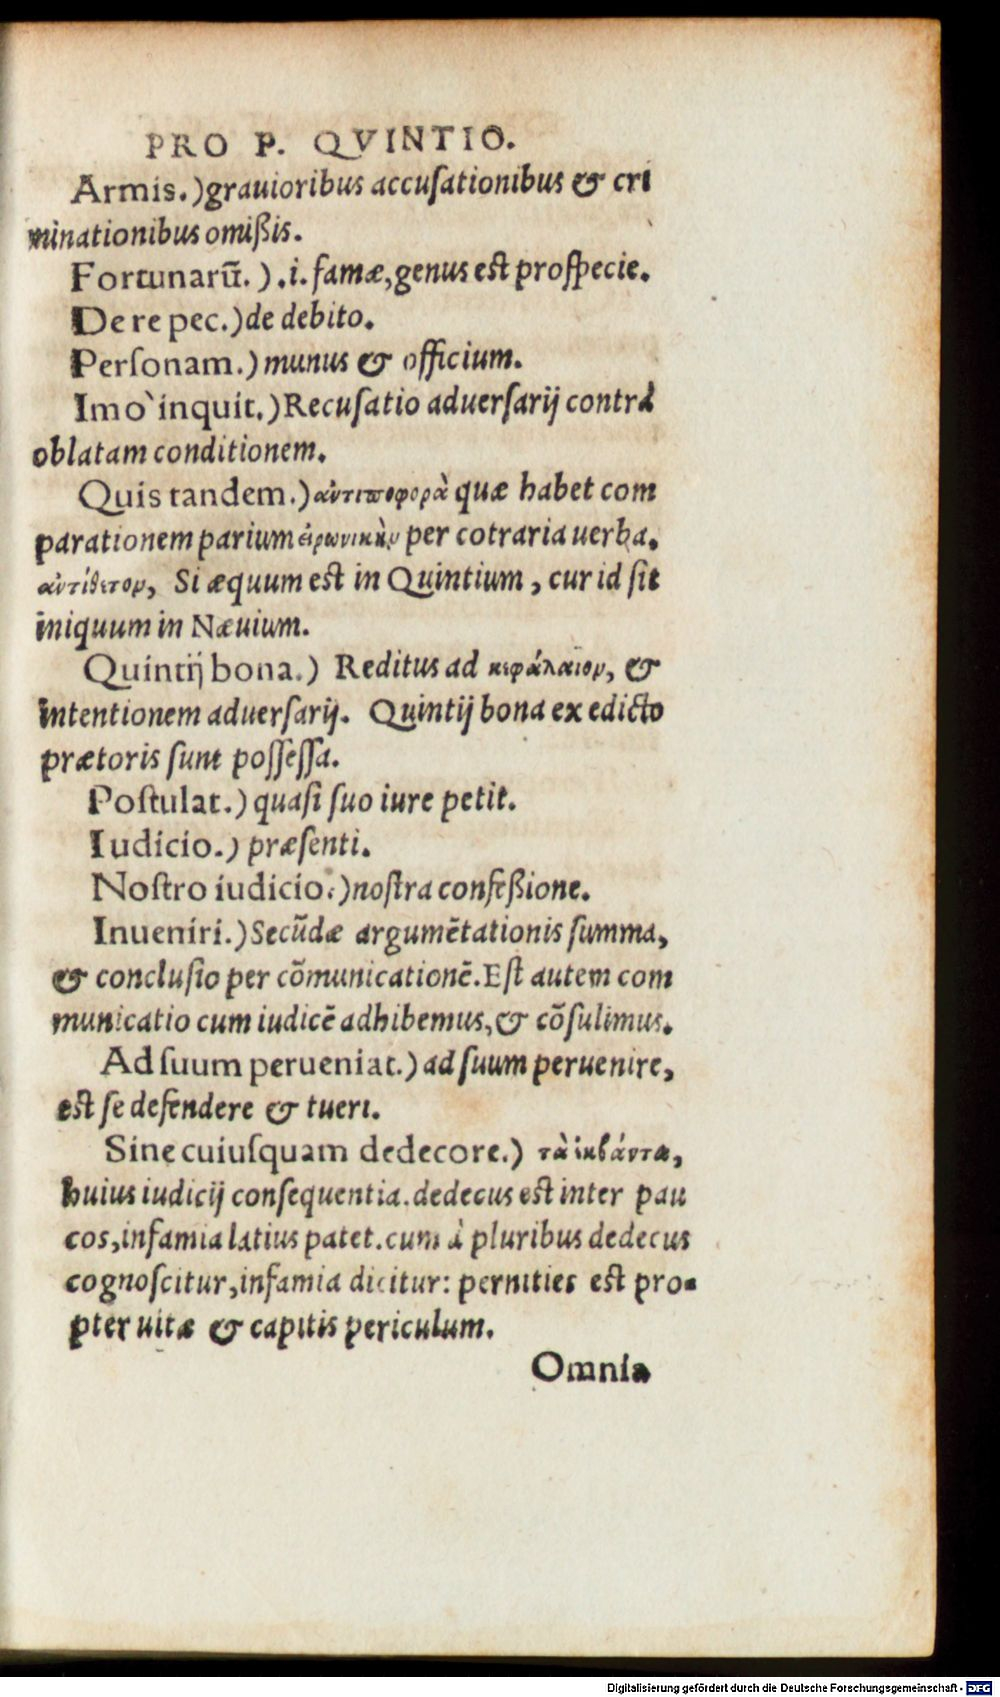 PRO P. QVINTIO.
Armis.)grauioribus accuſationibus & cri
minationibus omißis.
Fortunarū.).i. famæ,genus est proſpecie.
De re pec.)de debito.
Perſonam.)munus & officium.
Imo` inquit.)Recuſatio aduerſarij contrà
oblatam conditionem.
Quis tandem.)αὐντιποφορὰ quæ habet com
parationem parium εἰρωνικὴν per cotraria uerba.
αὐντίθετον, Si æquum est in Quintium, cur id ſit
iniquum in Næuium.
Quintij bona.) Reditus ad κεφάλαιον, &
intentionem aduerſarij. Quintij bona ex edicto
prætoris ſunt poſſeſſa.
Poſtulat.)quaſi ſuo iure petit.
Iudicio.)præſenti.
Noſtro iudicio.)noſtra confeßione.
Inueniri.)Secūdæ argumētationis ſumma,
& concluſio per cōmunicationē.Eſt autem com
municatio cum iudicē adhibemus,& cōſulimus.
Ad ſuum perueniat.)ad ſuum peruenire,
est ſe defendere & tueri.
Sine cuiuſquam dedecore.) τὰ ἐκβάντα,
huius iudicij conſequentia.dedecus est inter pau
cos,infamia latius patet.cum à pluribus dedecus
cognoſcitur,infamia dicitur: pernities est pro-
pter uitæ & capitis periculum.
Omnia
Digitalisierung gefördert durch die Deutsche Forschungsgemeinschaft - DFG